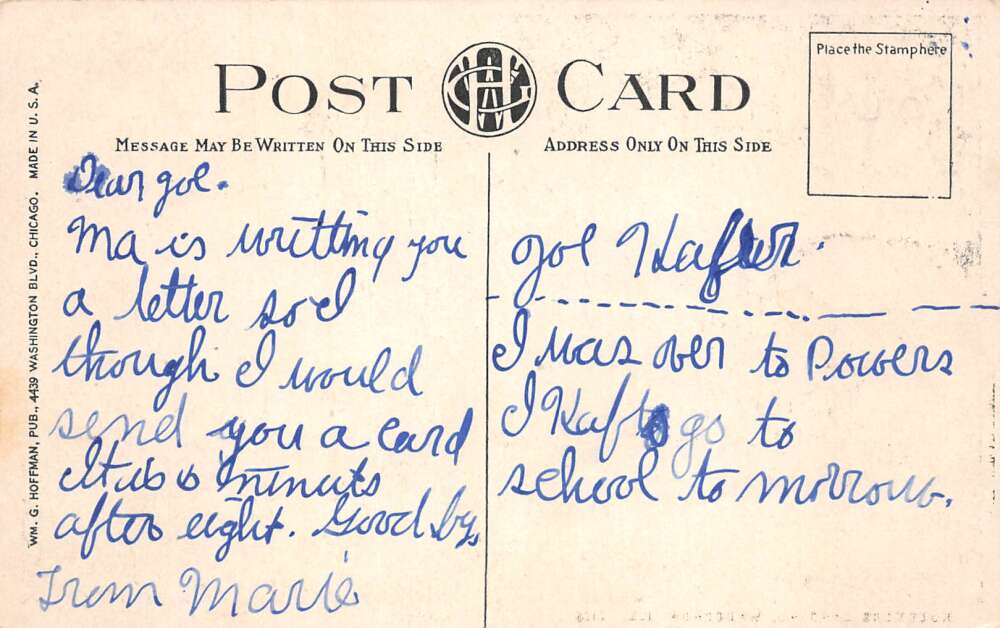 POST CARD
Place the Stamp here
MESSAGE MAY BE WRITTEN ON THIS SIDE
ADDRESS ONLY ON THIS SIDE
WM. G. HOFFMAN, PUB., 4439 WASHINGTON BLVD., CHICAGO. MADE IN U. S. A.
Dear Joe.
Ma is writting you
a letter so I
though I would
send you a card
It is 6 minuts
after eight. Good by,
From Marie
Joe Hafter.
I was over to Powers
I Haft go to
school to morrow.